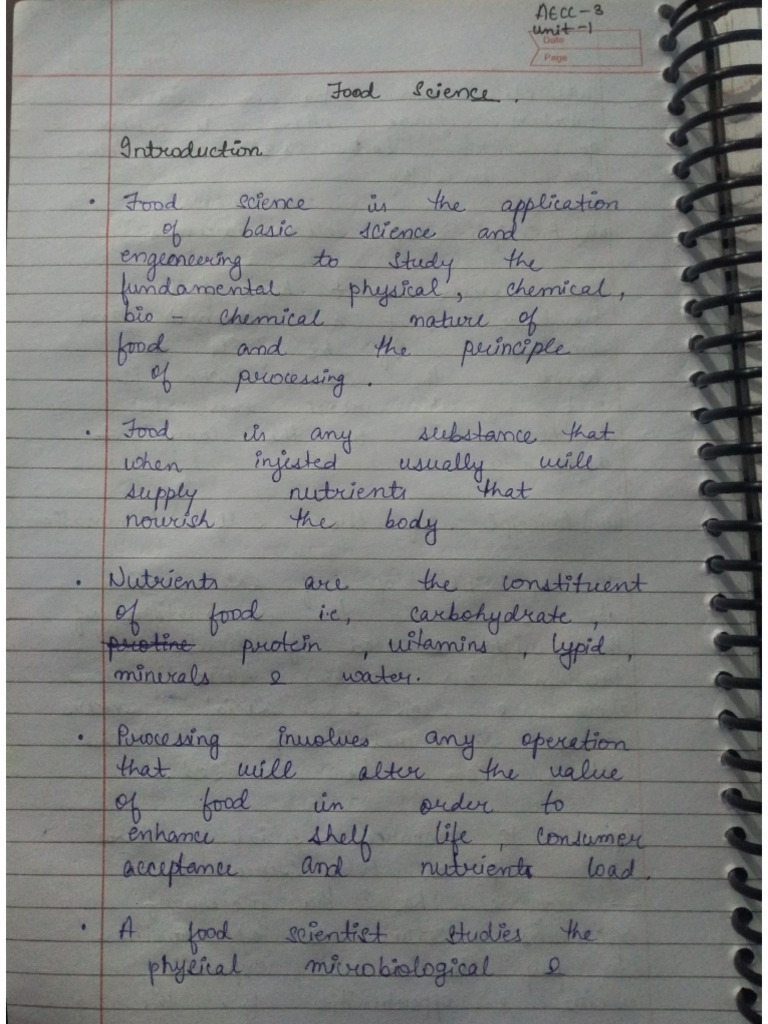 AECC-3
unit-1
Date
Page
Food Science.
Introduction
• Food science is the application
of basic science and
engeoneering to study the
fundamental physical, chemical,
bio - chemical nature of
food and the principle
of processing.
• Food is any substance that
when injested usually will
supply nutrients that
nourish the body
• Nutrients are the constituent
of food i.e, carbohydrate,
protine protein, vitamins, lypid,
minerals & water.
• Processing involves any operation
that will alter the value
of food in order to
enhance shelf life, consumer
acceptance and nutrient load.
• A food scientist studies the
physical microbiological &